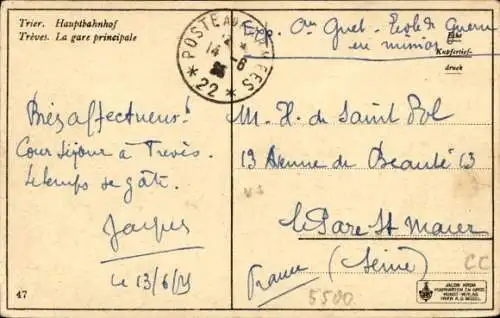 Trier. Hauptbahnhof
Trèves. La gare principale
POSTE AUX ARMÉES
14 - 6
* 22 *
Exp. Guet - École de Guerre
en mission
Echt
Kupfertief-
druck
Bien affectueux!
Court séjour à Trèves.
Le temps se gâte.
Jacques
le 13/6/
M. H. de Saint Pol
13 Avenue de Beauté 13
Le Parc St Maur
(Seine)
France
5500
CC
47
JACOB KROM